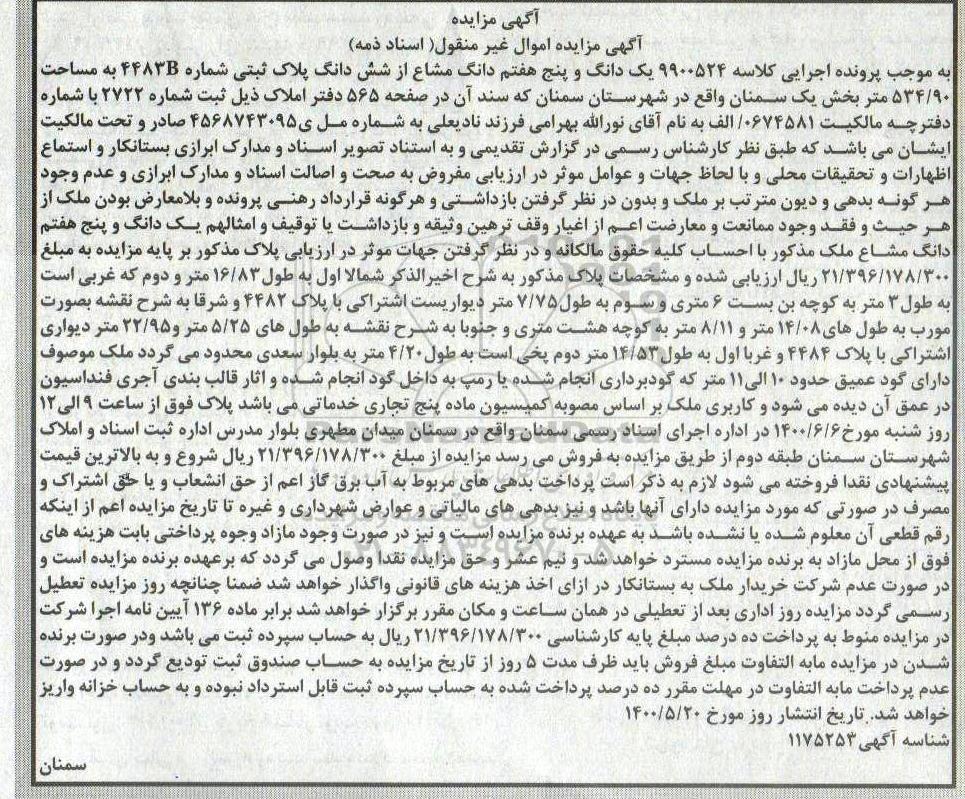 آگهی مزایده
آگهی مزایده اموال غیر منقول( اسناد ذمه)
به موجب پرونده اجرایی کلاسه ۹۹۰۰۵۲۴ یک دانگ و پنج هفتم دانگ مشاع از شش دانگ پلاک ثبتی شماره ۴۴۸۳B به مساحت
۵۳۴/۹۰ متر بخش یک سمنان واقع در شهرستان سمنان که سند آن در صفحه ۵۶۵ دفتر املاک ذیل ثبت شماره ۲۷۲۲ با شماره
دفترچه مالکیت ۰۶۷۴۵۸۱/ الف به نام آقای نورالله بهرامی فرزند نادیعلی به شماره مل ی۴۵۶۸۷۴۳۰۹۵ صادر و تحت مالکیت
ایشان می باشد که طبق نظر کارشناس رسمی در گزارش تقدیمی و به استناد تصویر اسناد و مدارک ابرازی بستانکار و استماع
اظهارات و تحقیقات محلی و با لحاظ جهات و عوامل موثر در ارزیابی مفروض به صحت و اصالت اسناد و مدارک ابرازی و عدم وجود
هر گونه بدهی و دیون مترتب بر ملک و بدون در نظر گرفتن بازداشتی و هرگونه قرارداد رهنی پرونده و بلامعارض بودن ملک از
هر حیث و فقد وجود ممانعت و معارضت اعم از اغیار وقف ترهین وثیقه و بازداشت یا توقیف و امثالهم یک دانگ و پنج هفتم
دانگ مشاع ملک مذکور با احساب کلیه حقوق مالکانه و در نظر گرفتن جهات موثر در ارزیابی پلاک مذکور بر پایه مزایده به مبلغ
۲۱/۳۹۶/۱۷۸/۳۰۰ ریال ارزیابی شده و مشخصات پلاک مذکور به شرح اخیرالذکر شمالا اول به طول ۱۶/۸۳ متر و دوم که غربی است
به طول ۳ متر به کوچه بن بست ۶ متری و سوم به طول ۷/۷۵ متر دیواریست اشتراکی با پلاک ۴۴۸۲ و شرقا به شرح نقشه بصورت
مورب به طول های ۱۴/۰۸ متر و ۸/۱۱ متر به کوچه هشت متری و جنوبا به شرح نقشه به طول های ۵/۲۵ متر و۲۲/۹۵ متر دیواری
اشتراکی با پلاک ۴۴۸۴ و غربا اول به طول ۱۴/۵۳ متر دوم پخی است به طول ۴/۲۰ متر به بلوار سعدی محدود می گردد ملک موصوف
دارای گود عمیق حدود ۱۰ الی۱۱ متر که گودبرداری انجام شده یا رمپ به داخل گود انجام شده و اثار قالب بندی آجری فنداسیون
در عمق آن دیده می شود و کاربری ملک بر اساس مصوبه کمیسیون ماده پنج تجاری خدماتی می باشد پلاک فوق از ساعت ۹ الی۱۲
روز شنبه مورخ ۱۴۰۰/۶/۶ در اداره اجرای اسناد رسمی سمنان واقع در سمنان میدان مطهری بلوار مدرس اداره ثبت اسناد و املاک
شهرستان سمنان طبقه دوم از طریق مزایده به فروش می رسد مزایده از مبلغ ۲۱/۳۹۶/۱۷۸/۳۰۰ ریال شروع و به بالاترین قیمت
پیشنهادی نقدا فروخته می شود لازم به ذکر است پرداخت بدهی های مربوط به آب برق گاز اعم از حق انشعاب و یا حق اشتراک و
مصرف در صورتی که مورد مزایده دارای آنها باشد و نیز بدهی های مالیاتی و عوارض شهرداری و غیره تا تاریخ مزایده اعم از اینکه
رقم قطعی آن معلوم شده یا نشده باشد به عهده برنده مزایده است و نیز در صورت وجود مازاد وجوه پرداختی بابت هزینه های
فوق از محل مازاد به برنده مزایده مسترد خواهد شد و نیم عشر و حق مزایده نقدا وصول می گردد که برعهده برنده مزایده است و
در صورت عدم شرکت خریدار ملک به بستانکار در ازای اخذ هزینه های قانونی واگذار خواهد شد ضمنا چنانچه روز مزایده تعطیل
رسمی گردد مزایده روز اداری بعد از تعطیلی در همان ساعت و مکان مقرر برگزار خواهد شد برابر ماده ۱۳۶ آیین نامه اجرا شرکت
در مزایده منوط به پرداخت ده درصد مبلغ پایه کارشناسی ۲۱/۳۹۶/۱۷۸/۳۰۰ ریال به حساب سپرده ثبت می باشد ودر صورت برنده
شدن در مزایده مابه التفاوت مبلغ فروش باید ظرف مدت ۵ روز از تاریخ مزایده به حساب صندوق ثبت تودیع گردد و در صورت
عدم پرداخت مابه التفاوت در مهلت مقرر ده درصد پرداخت شده به حساب سپرده ثبت قابل استرداد نبوده و به حساب خزانه واریز
خواهد شد. تاریخ انتشار روز مورخ ۱۴۰۰/۵/۲۰
شناسه آگهی۱۱۷۵۲۵۳
سمنان